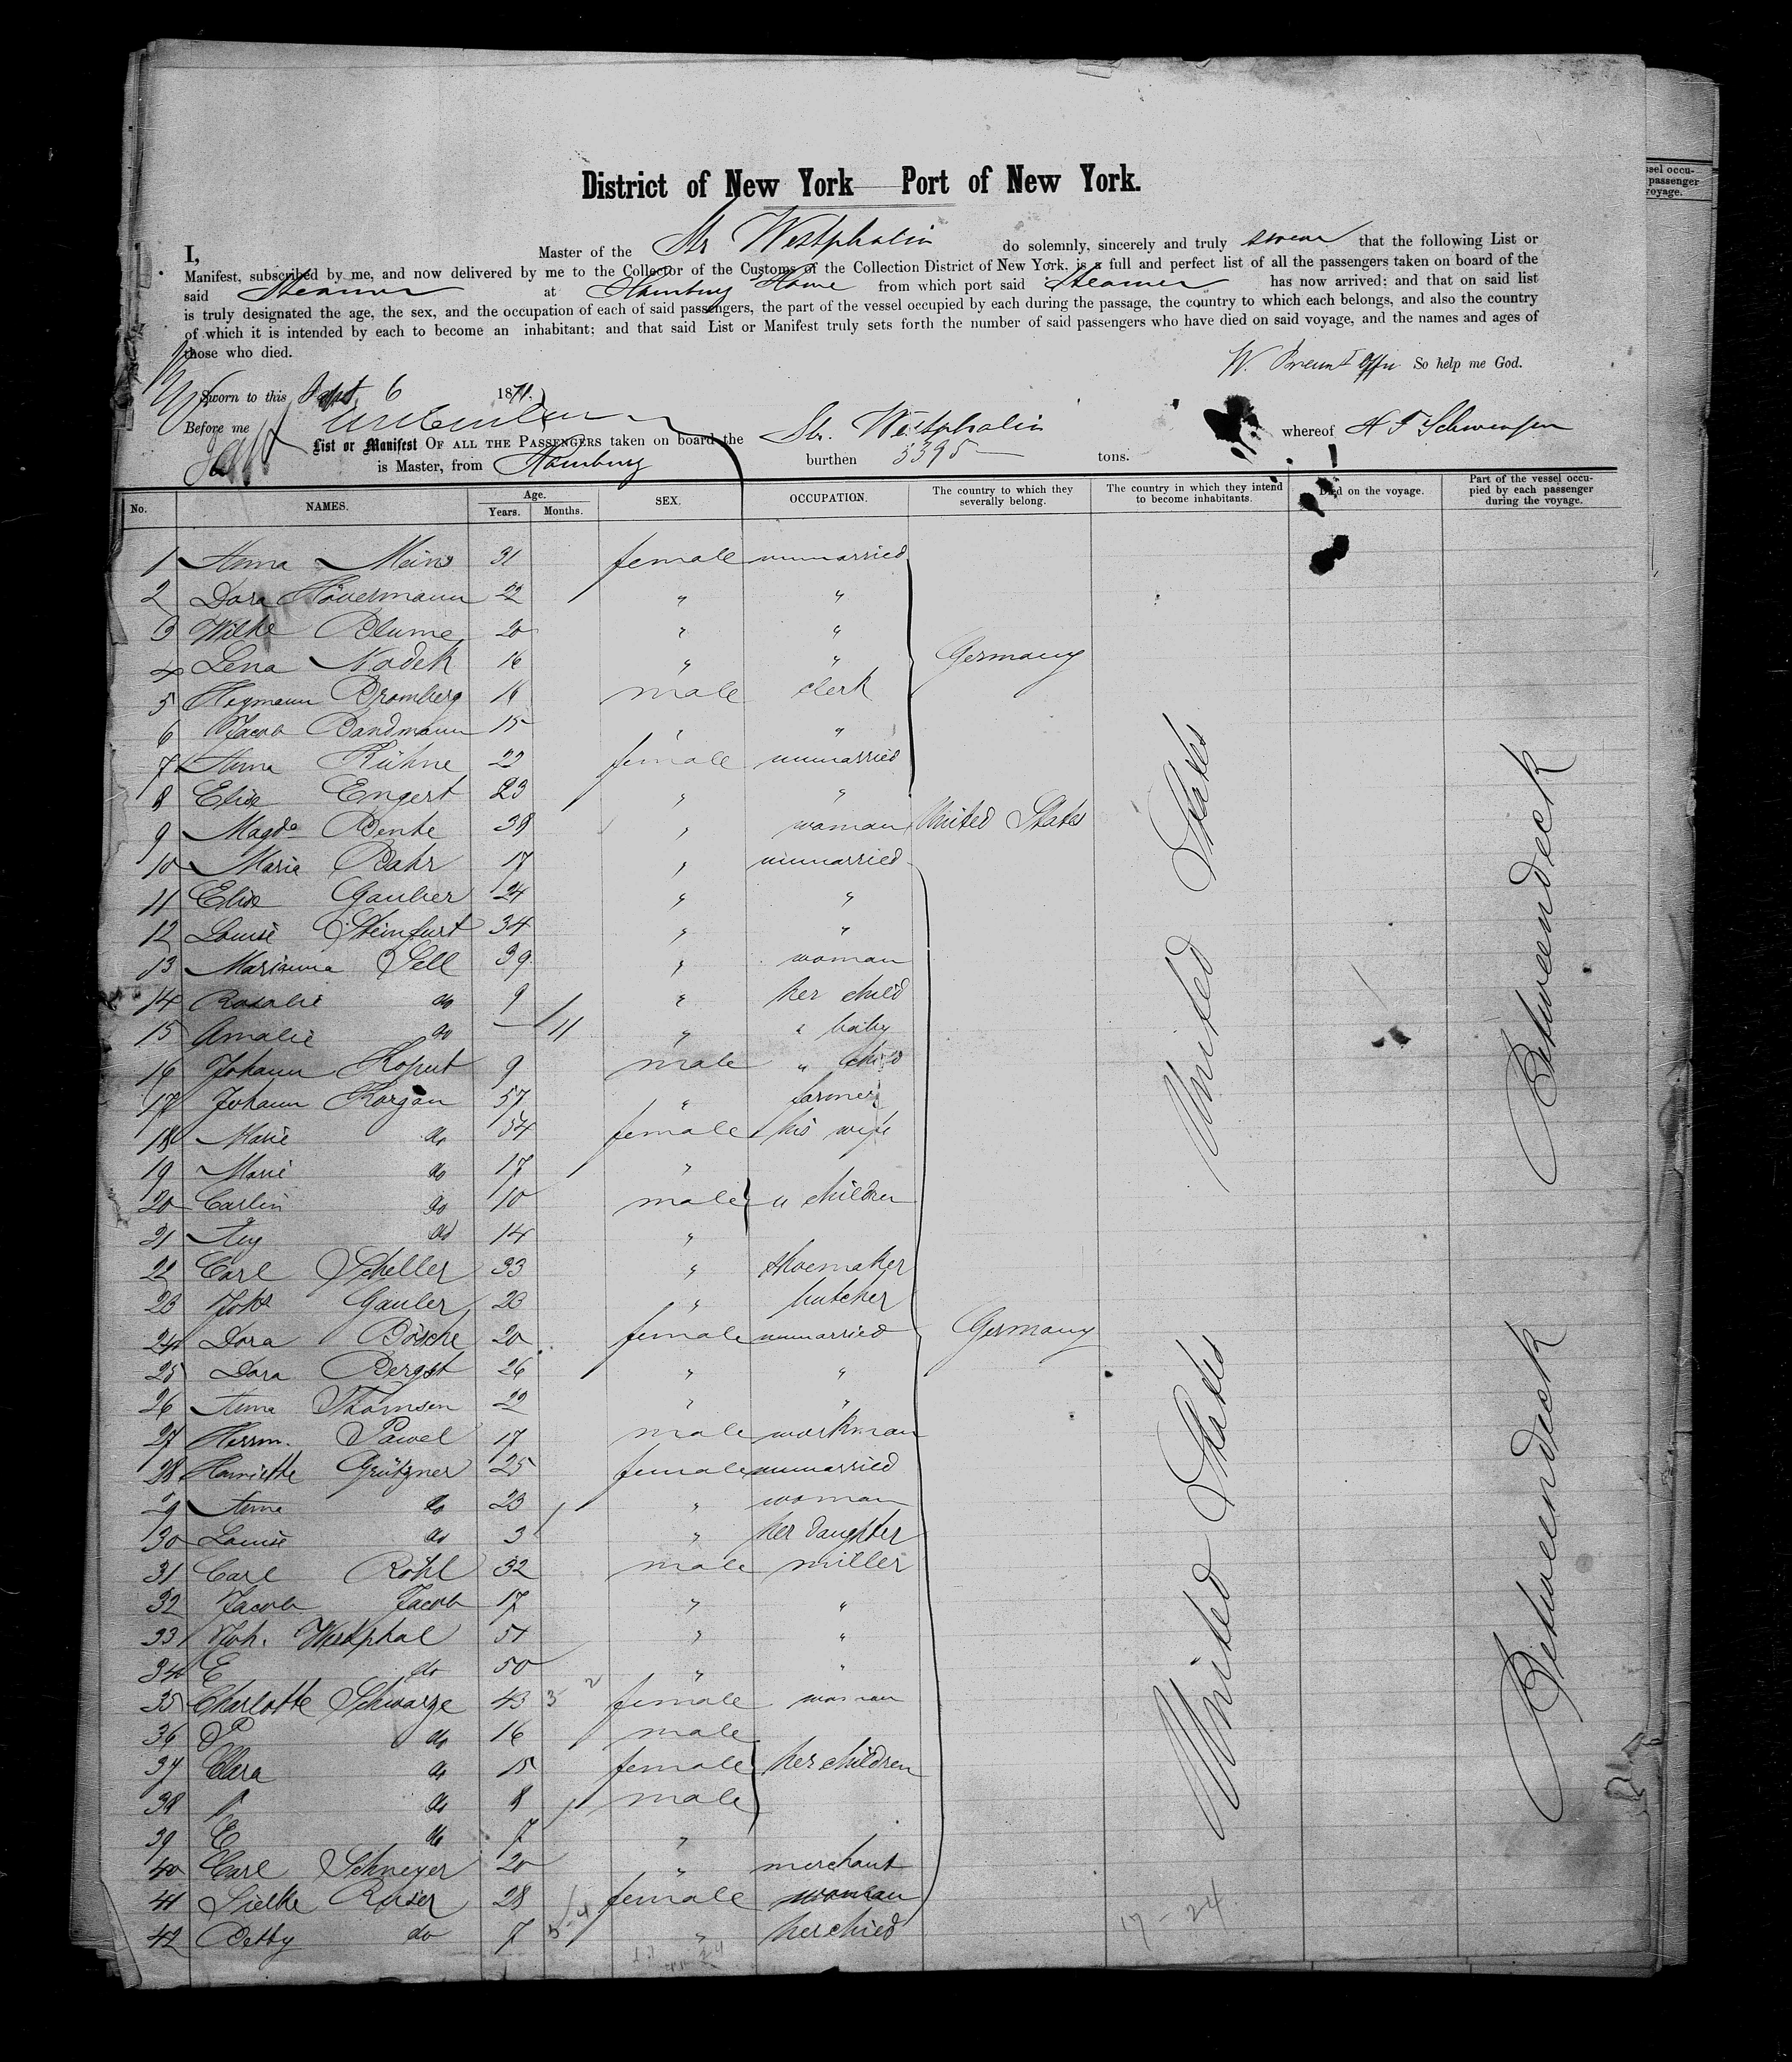 District of New York Port of New York.
I, Master of the Str Westphalia do solemnly, sincerely and truly swear that the following List or
Manifest, subscribed by me, and now delivered by me to the Collector of the Customs of the Collection District of New York, is a full and perfect list of all the passengers taken on board of the
said Steamer at Hamburg Havre from which port said Steamer has now arrived; and that on said list
is truly designated the age, the sex, and the occupation of each of said passengers, the part of the vessel occupied by each during the passage, the country to which each belongs, and also the country
of which it is intended by each to become an inhabitant; and that said List or Manifest truly sets forth the number of said passengers who have died on said voyage, and the names and ages of
those who died.
So help me God.
Sworn to this Sept 6 1871.
Before me
List or Manifest OF ALL THE PASSENGERS taken on board the Str. Westphalia whereof H F Schwensen
is Master, from Hamburg burthen 3395 tons.
No. NAMES. Age. Years. Months. SEX. OCCUPATION. The country to which they severally belong. The country in which they intend to become inhabitants. Died on the voyage. Part of the vessel occupied by each passenger during the voyage.
1 Anna Meins 31 female unmarried
2 Dora Hövermann 22 " "
3 Wilhe Blume 20 " "
4 Lena Nodek 16 " " Germany
5 Heymann Bromberg 16 male clerk
6 Jacob Bandmann 15 " "
7 Anna Kühne 22 female unmarried
8 Elise Engert 23 " "
9 Magda Bente 38 " woman United States
10 Marie Bahr 17 " unmarried
11 Elise Gauber 24 " "
12 Louise Steinfurt 34 " "
13 Marianna Sell 39 " woman
14 Rosalie do 9 " her child
15 Amalie do — 11 " " baby
16 Johann Koput 9 male " child
17 Johann Korgan 57 " farmer
18 Marie do 54 female his wife
19 Marie do 17 "
20 Carlin do 10 male " children
21 Aug do 14 "
22 Carl Scheller 33 " shoemaker
23 Johs Gauler 23 " butcher
24 Dora Bösche 20 female unmarried Germany
25 Dora Bergst 26 " "
26 Anna Thomsen 22 " "
27 Herrm. Pawel 17 male workman
28 Henriette Grützner 25 female unmarried
29 Anna do 23 " woman
30 Louise do 3 " her daughter
31 Carl Röhl 32 male miller
32 Jacob Jacob 17 " "
33 Joh. Westphal 51 " "
34 E do 50 " "
35 Charlotte Schwarze 43 female woman
36 P do 16 male
37 Clara do 15 female her children
38 do 8 male
39 E do 7 "
40 Carl Schneyer 20 " merchant
41 Sielke Roser 28 female woman
42 Betty do 7 " her child
United States
United States
Betweendeck
Betweendeck
17 - 24
ssel occu-
passenger
voyage.